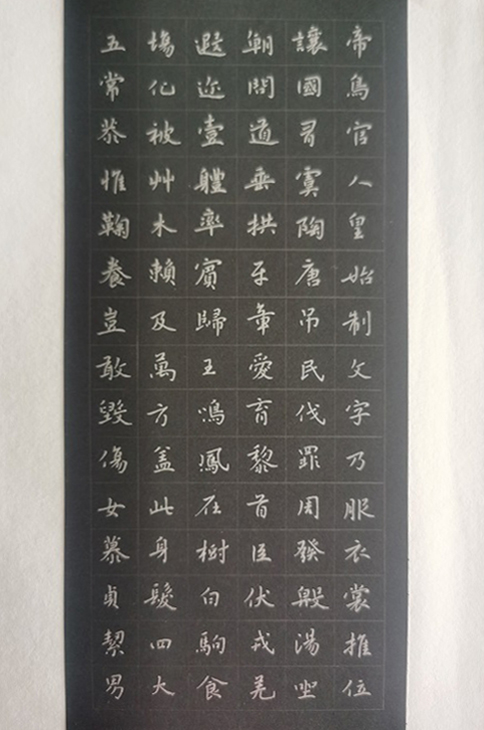 帝鳥官人皇始制文字乃服衣裳推位
讓國有虞陶唐吊民伐罪周發殷湯坐
朝問道垂拱平章愛育黎首臣伏戎羌
遐迩壹軆率賓歸王鳴鳳在樹白駒食
場化被艸木賴及萬方盖此身髮四大
五常恭惟鞠養豈敢毀傷女慕貞絜男